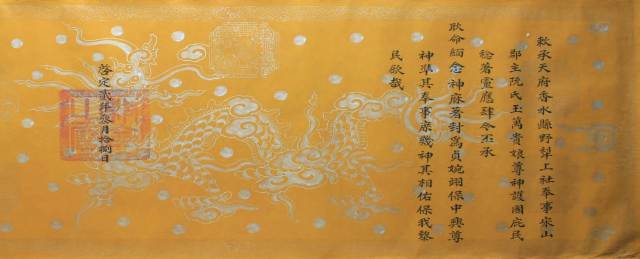 敕承天府香水縣野犂上社奉事山
郡主阮氏玉萬貴娘尊神護國庇民
稔著靈應肆今丕承
耿命緬念神庥著封爲貞婉翊保中興尊
神準其奉事庶幾神其相佑保我黎
民欽哉
啓定貳年叄月拾捌日